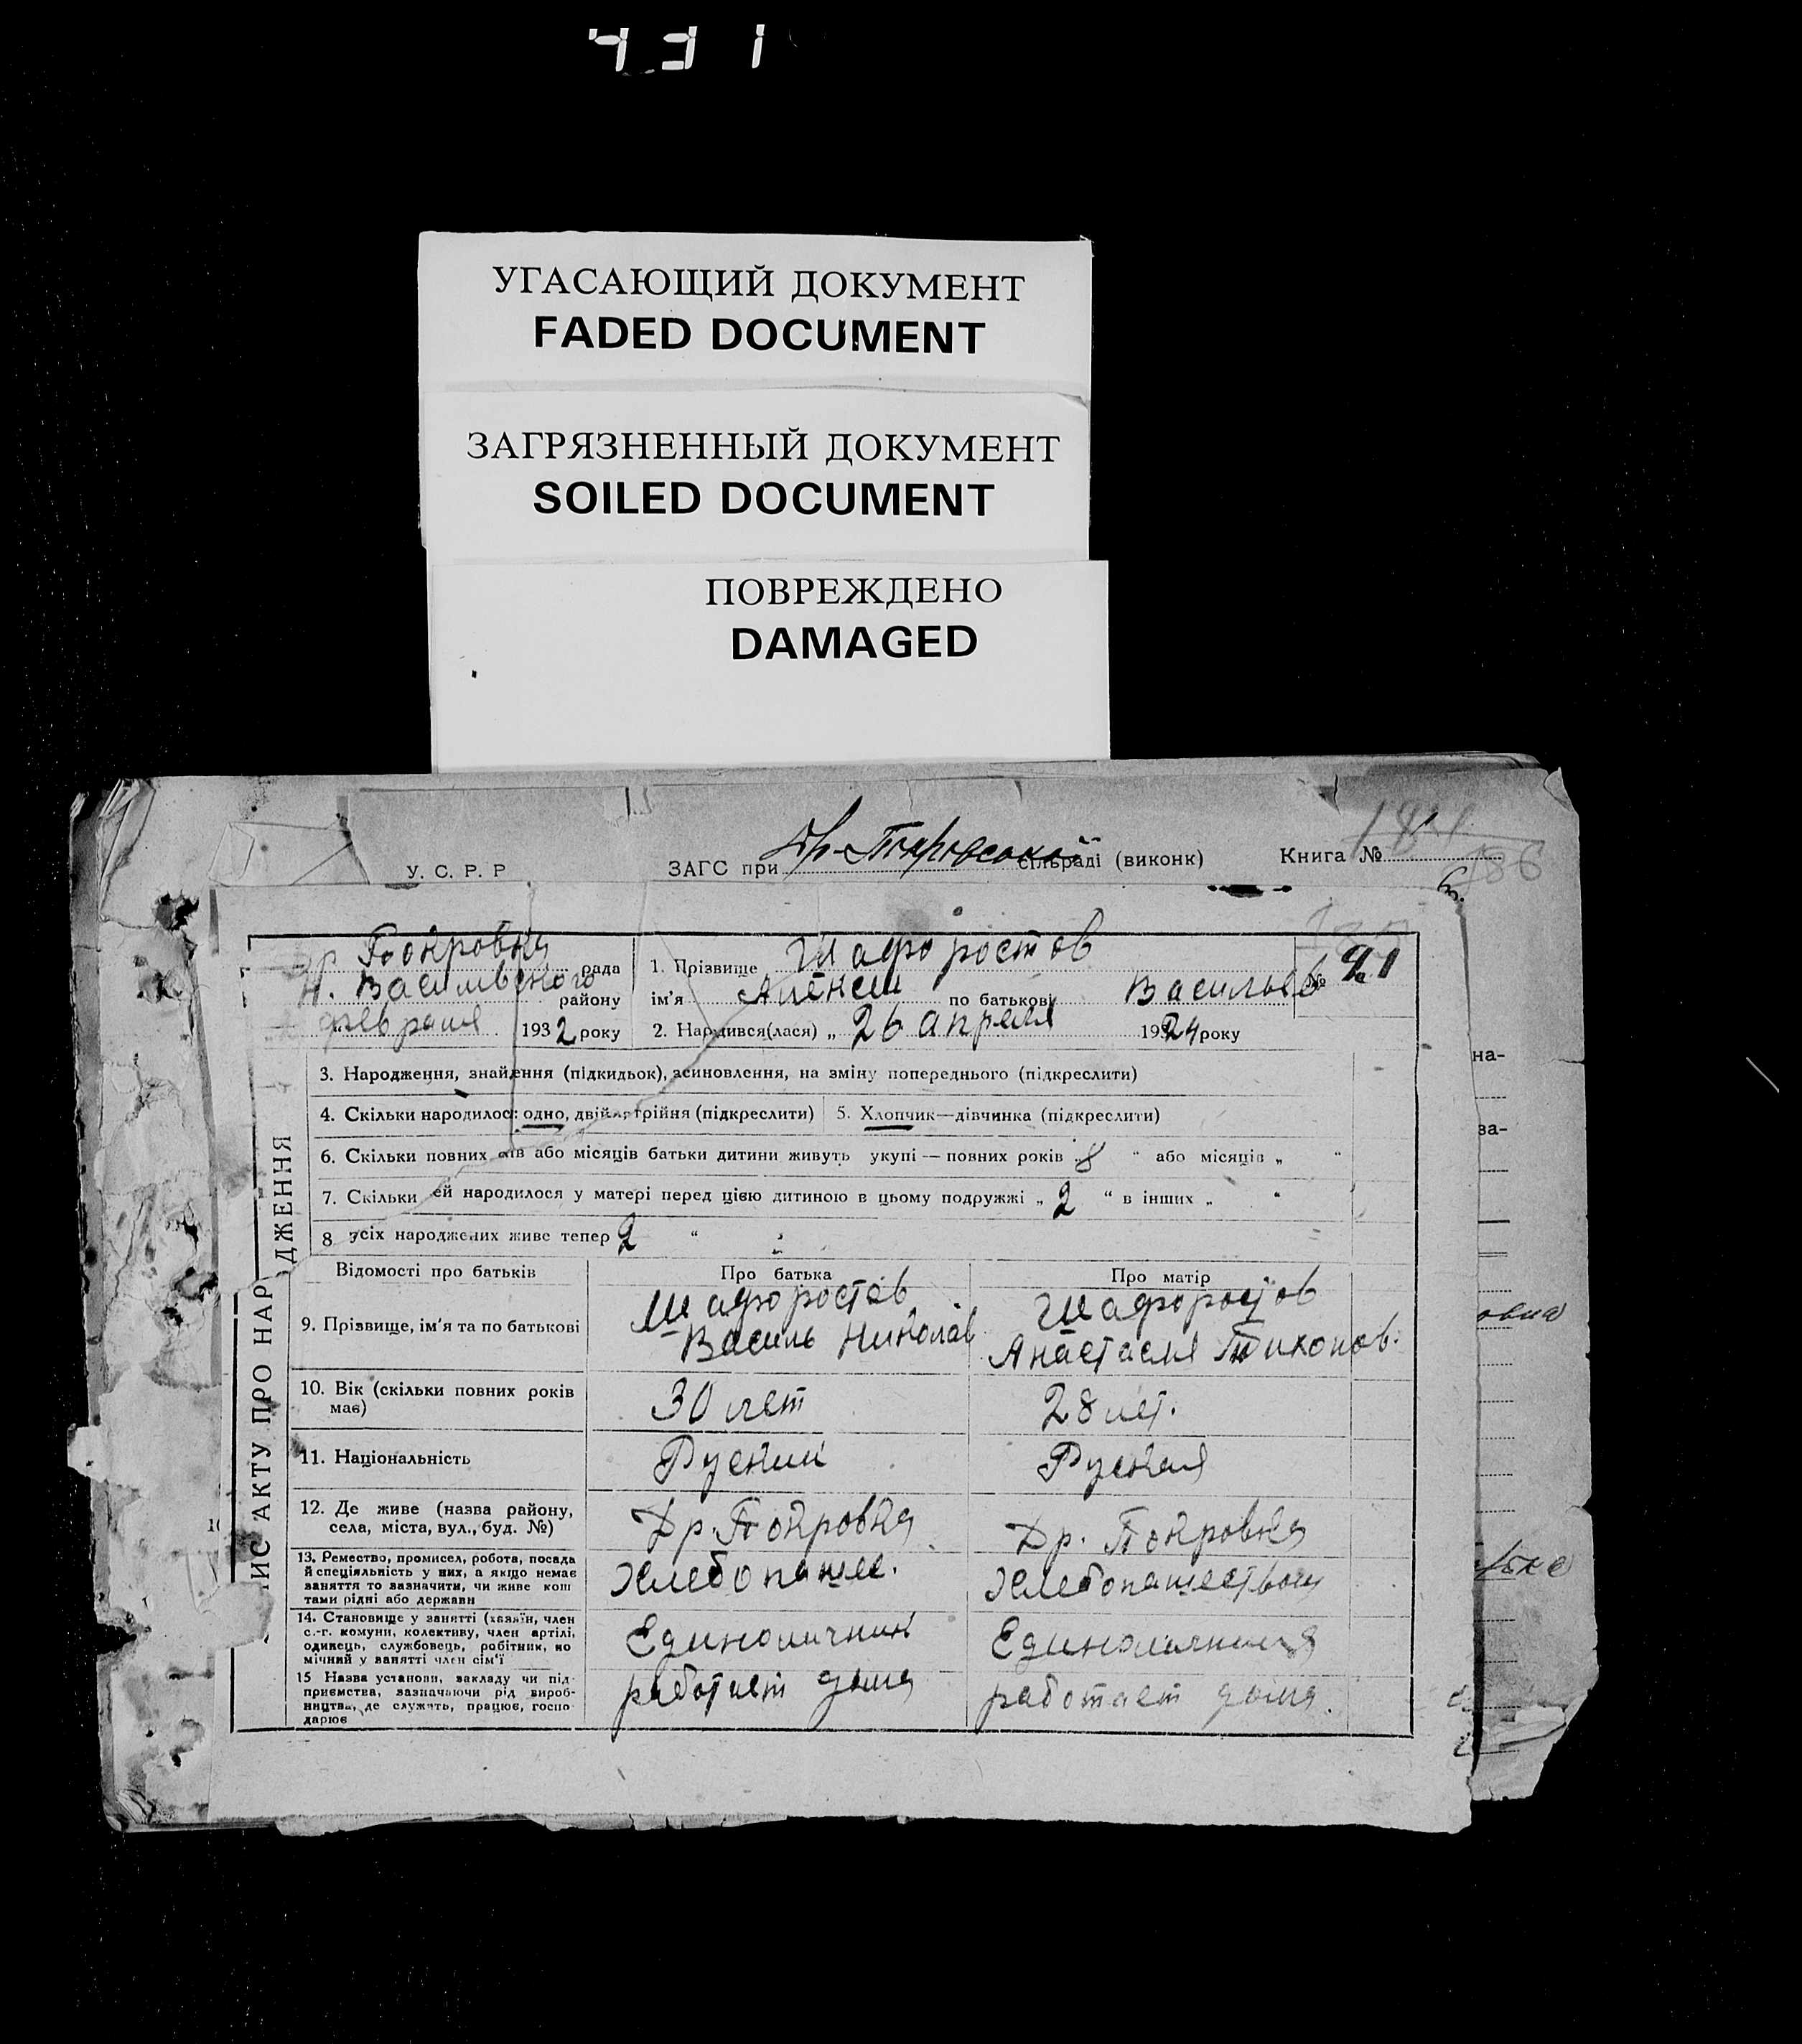 431
УГАСАЮЩИЙ ДОКУМЕНТ
FADED DOCUMENT
ЗАГРЯЗНЕННЫЙ ДОКУМЕНТ
SOILED DOCUMENT
ПОВРЕЖДЕНО
DAMAGED
У. С. Р. Р ЗАГС при Др-Покровской сільраді (виконк) Книга №
186
Др Покровка рада
Н. Васильвского району
февраля 1932 року
1. Прізвище Шафоростов
ім'я Алексей по батькові Васильев № 91
2. Народився(лася) „ 26 апреля 1924 року
3. Народження, знайдення (підкидьок), зсиновлення, на зміну попереднього (підкреслити)
4. Скільки народилося: одно, двійня, трійня (підкреслити) 5. Хлопчик—дівчинка (підкреслити)
6. Скільки повних років або місяців батьки дитини живуть укупі — повних років 8 “ або місяців „ “
7. Скільки ей народилося у матері перед цією дитиною в цьому подружжі „ 2 “ в інших „ “
8 усіх народжених живе тепер 2 “
ИС АКТУ ПРО НАР ДЖЕННЯ
Відомості про батьків Про батька Про матір
9. Прізвище, ім'я та по батькові
Шафоростов Василь Николаів
Шафоростов Анастасия Тихонов.
10. Вік (скільки повних років має) 30 лет 28 лет.
11. Національність Руский Руская
12. Де живе (назва району, села, міста, вул., буд. №) Др. Покровка Др. Покровка
13. Ремество, промисел, робота, посада
й спеціяльність у них, а якщо немає
заняття то зазначити, чи живе кош
тами рідні або держави
Хлебопашес. Хлебопашеством
14. Становище у занятті (хазяїн, член
с.-г. комуни, колективу, член артілі,
одинець, службовець, робітник, по
мічний у занятті член сім'ї
Единоличник Единоличница
15 Назва установи, закладу чи під-
приємства, зазначаючи рід вироб-
ництва, де служить, працює, госпо-
дарює
работает дома работает дома.
на-
ва-
овна